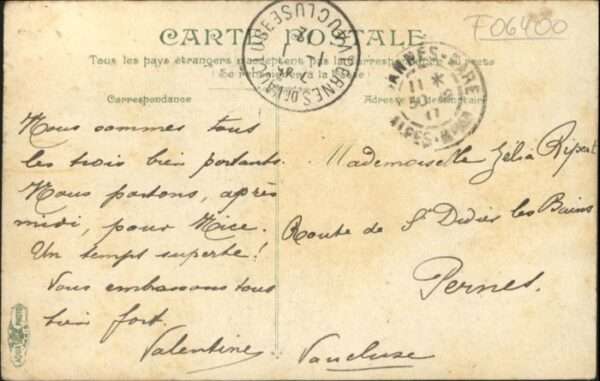 F06400
CARTE POSTALE
Tous les pays étrangers n'acceptent pas la correspondance au recto
Se renseigner à la Poste
Correspondance
Adresse du destinataire
Nous sommes tous
les trois bien portants.
Nous partons, après
midi, pour Nice.
Un temps superbe!
Vous embrassons tous
bien fort.
Valentine
Mademoiselle Zélia Ripert
Route de St Didier les Bains
Pernes.
Vaucluse
PERNES VAUCLUSE
CANNES-GARE
11
ALPES-MARIT